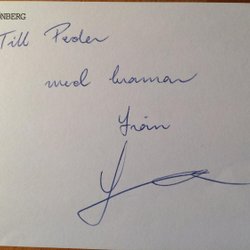 ÖNBERG
Till Peder
med kramar
från